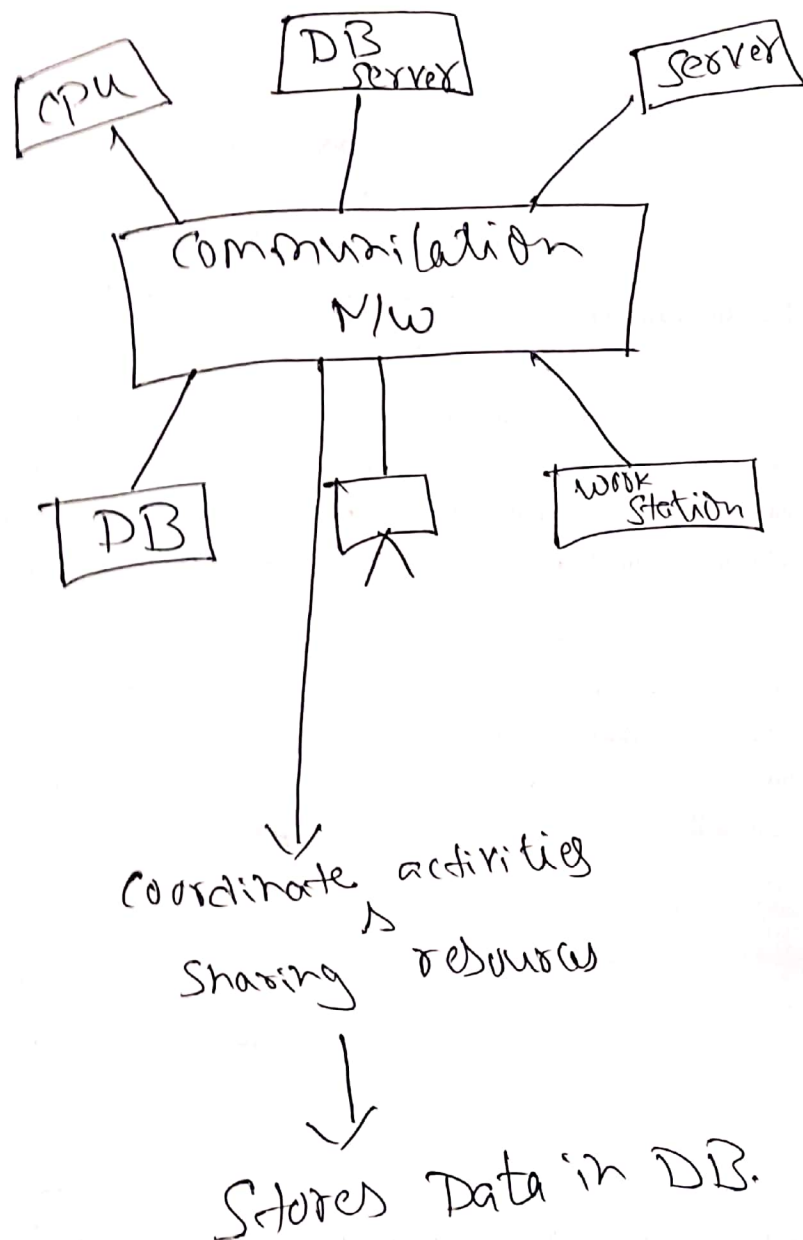 CPU
DB
Server
Server
Communication
N/W
DB
Work
Station
Coordinate activities
&
Sharing resources
Stores Data in DB.